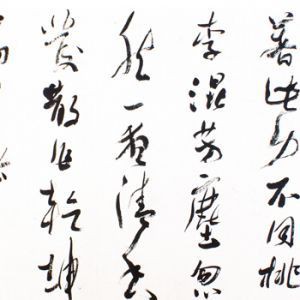 著此身不同桃
李混芳塵忽
然一夜清香
發散作乾坤